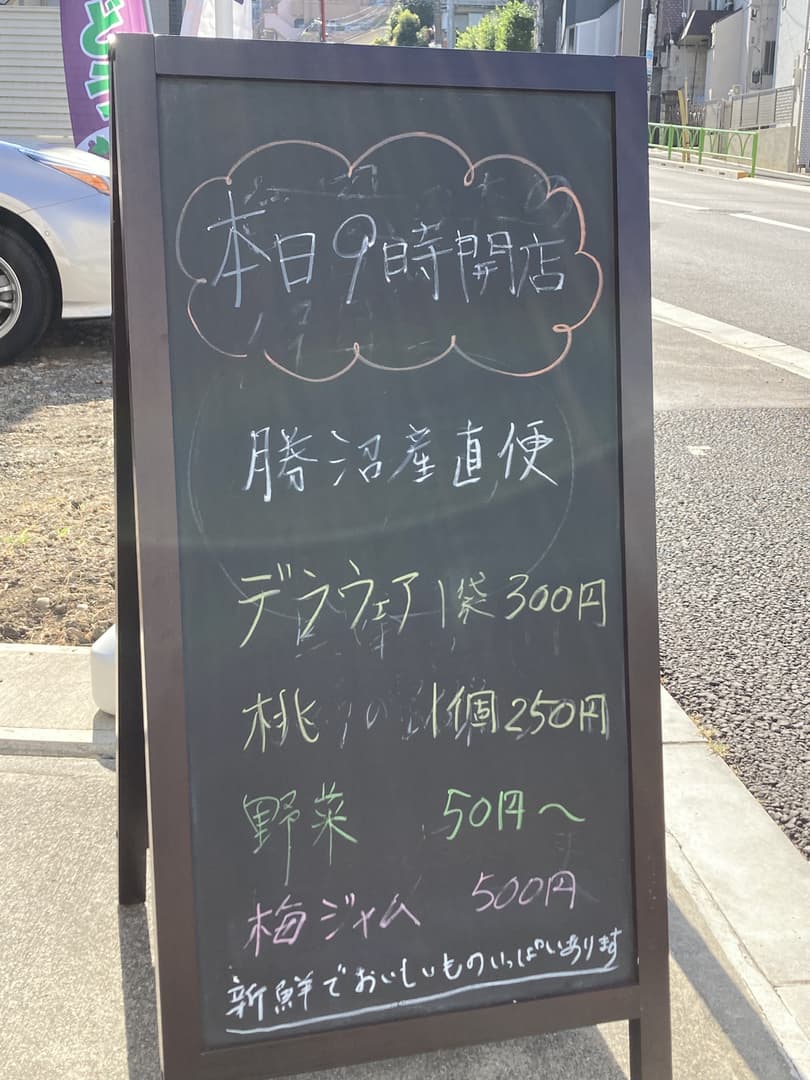 本日9時開店
勝沼産直便
デラウェア1袋300円
桃 1個250円
野菜 50円〜
梅ジャム 500円
新鮮でおいしいものいっぱいあります